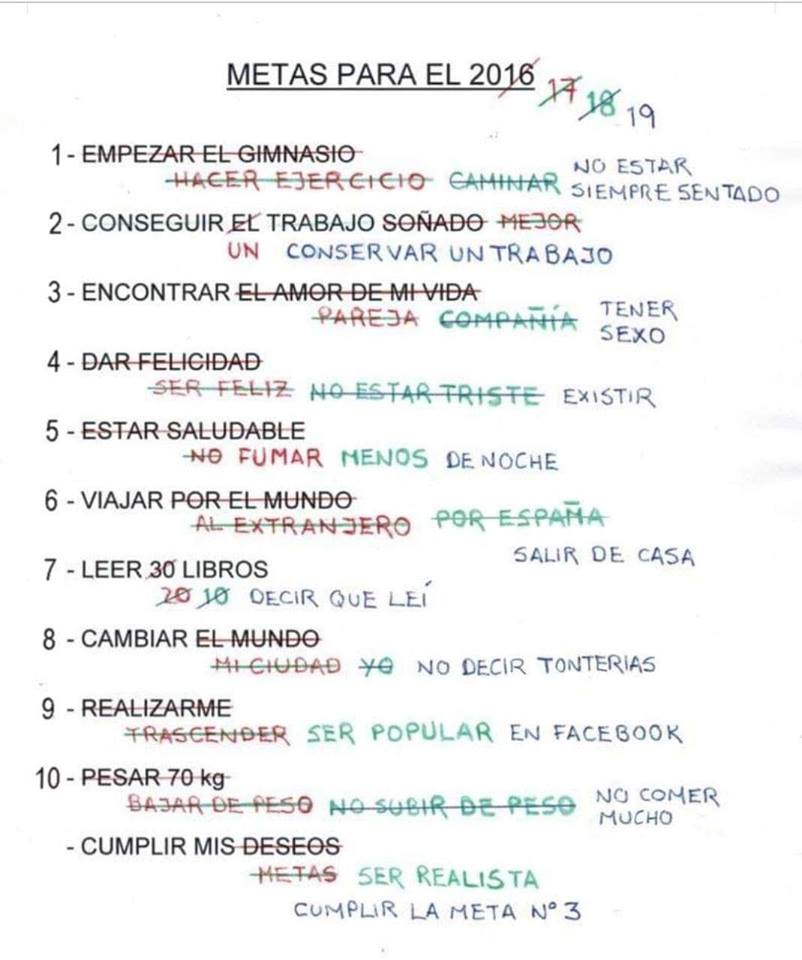 METAS PARA EL 2016 17 18 19
1 - EMPEZAR EL GIMNASIO
HACER EJERCICIO CAMINAR NO ESTAR SIEMPRE SENTADO
2 - CONSEGUIR EL TRABAJO SOÑADO MEJOR
UN CONSERVAR UN TRABAJO
3 - ENCONTRAR EL AMOR DE MI VIDA
PAREJA COMPAÑÍA TENER SEXO
4 - DAR FELICIDAD
SER FELIZ NO ESTAR TRISTE EXISTIR
5 - ESTAR SALUDABLE
NO FUMAR MENOS DE NOCHE
6 - VIAJAR POR EL MUNDO
AL EXTRANJERO POR ESPAÑA
SALIR DE CASA
7 - LEER 30 LIBROS
20 10 DECIR QUE LEÍ
8 - CAMBIAR EL MUNDO
MI CIUDAD YO NO DECIR TONTERIAS
9 - REALIZARME
TRASCENDER SER POPULAR EN FACEBOOK
10 - PESAR 70 kg
BAJAR DE PESO NO SUBIR DE PESO NO COMER MUCHO
- CUMPLIR MIS DESEOS
METAS SER REALISTA
CUMPLIR LA META Nº 3